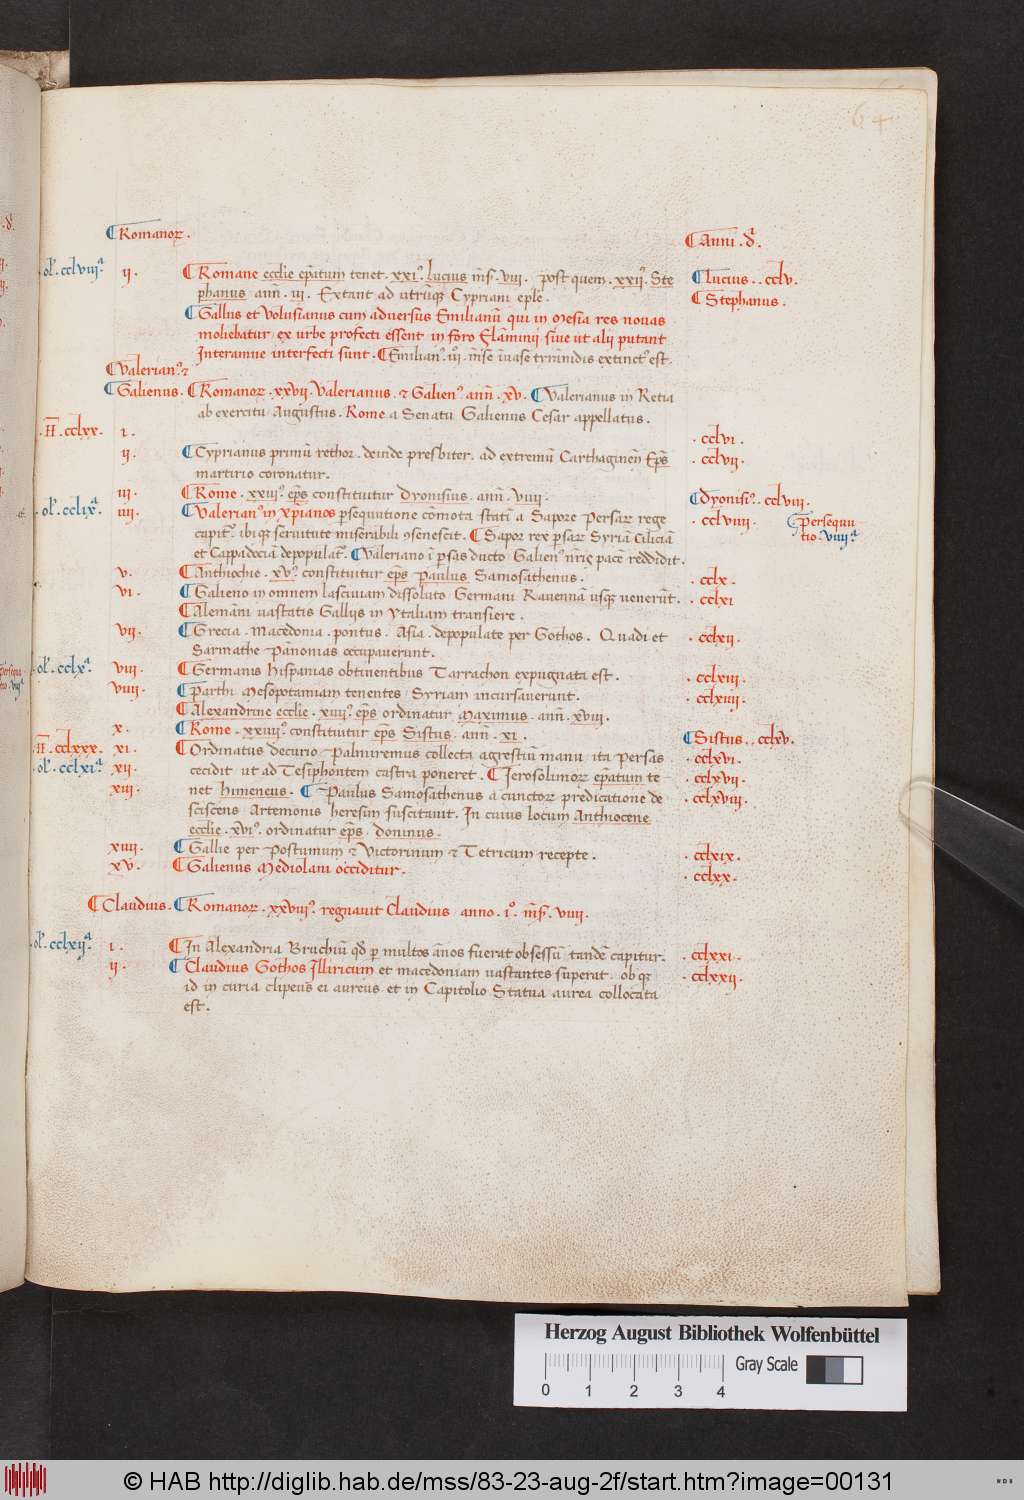 64
Romanoꝝ.
Anni .d̄.
.ol̄. cclviiiᵃ ij. Romane ecclīe ep̄atum tenet. xxi⁹. lucius mēs̄. viii. post quem. xxii⁹. Ste Lucius.. cclv.
phanus ann̄. iii. Extant ad utrūqꝫ Cypriani eplē. Stephanus.
Gallus et Volusianus cum adversus Emilianū qui in Mesia res novas
moliebatur ex urbe profecti essent in foro Flāminii sive ut alii putant
Interamne interfecti sunt. Emilian⁹. iii⁹. mēse ivase tyrānidis extinct⁹ est.
Valerian⁹. ⁊
Galienus. Romanoꝝ. xxvii. Valerianus. ⁊ Galien⁹. ann̄. xv. Valerianus in Retia
ab exercitu Augustus. Rome a Senatu Galienus Cesar appellatus.
.H̄. cclxx. i. . cclvi.
ij. Cyprianus primū rethor. deinde presbiter. ad extremū Carthaginēn Ep̄s . cclvij.
martirio coronatur.
iii. Rome. xxiii⁹. ep̄s constituitur Dyonisius. ann̄. viiii. Dyonisi⁹. cclviii.
. ol̄. cclixᵃ. iiii. Valerian⁹ in xp̄ianos p̱sequutione cōmota stati᷑ a Sapore Persaꝝ rege . cclviiii. Persequu
capit⁹. ibiqꝫ servitute miserabili ꝯsenescit. Sapor rex p̱saꝝ Syriā Ciliciā tio. viiiiᵃ
et Cappadociā depopulat⁹. Valeriano i᷑ p̱sas ducto Galien⁹ nr̄is pacē reddidit.
v. Anthiochie. xv⁹. constituitur ep̄s Paulus Samosathenus. . cclx.
vi. Galieno in omnem lasciviam dissoluto Germani Ravennā usqꝫ venerūt. . cclxi
Alemāni vastatis Gallijs in Ytaliam transiere.
vij. Grecia. Macedonia. pontus. Asia. depopulate per Gothos. Quadi et . cclxij.
Sarmathe Pānonias occupaverunt.
. ol̄. cclxᵃ. viii. Germanis Hispanias obtinentibus Tarrachon expugnata est. . cclxiii.
viiii. Parthi Mesopotamiam tenentes Syriam incursaverunt. . cclxiiii.
Alexandrine ecclīe. xiiii⁹. ep̄s ordinatur Maximus. ann̄. xviii.
x. Rome. xxiiii⁹. constituitur ep̄s Sistus. ann̄. xi. Sistus.. cclxv.
.H̄. cclxxx. xi. Ordinatus decurio Palmiremus collecta agrestiū manu ita Persas . cclxvi.
. ol̄. cclxiᵃ. xij. cecidit ut ad Tesiphontem castra poneret. Jerosolimoꝝ ep̄atum te . cclxvij.
xiii. net himeneus. Paulus Samosathenus a cunctoꝝ predicatione de . cclxviii.
sciscens Artemonis heresim suscitavit. In cuius locum Anthiocene
ecclīe. xvi⁹. ordinatur ep̄s. domnus.
xiiii. Gallie per Postumum ⁊ Victorinum ⁊ Tetricum recepte. . cclxix.
xv. Galienus Mediolani occiditur. . cclxx.
Claudius. Romanoꝝ. xxviii⁹. regnavit Claudius anno. i⁹. mēs̄. viiii.
. ol̄. cclxijᵃ. i. In Alexandria Bruchiū qd̄ p̱ multos ānos fuerat obsessū tandē capitur. . cclxxi.
ij. Claudius Gothos Illiricum et macedoniam vastantes superat. ob qꝫ . cclxxij.
id in curia clipeus ei aureus et in Capitolio Statua aurea collocata
est.
Herzog August Bibliothek Wolfenbüttel
Gray Scale
0 1 2 3 4
© HAB http://diglib.hab.de/mss/83-23-aug-2f/start.htm?image=00131